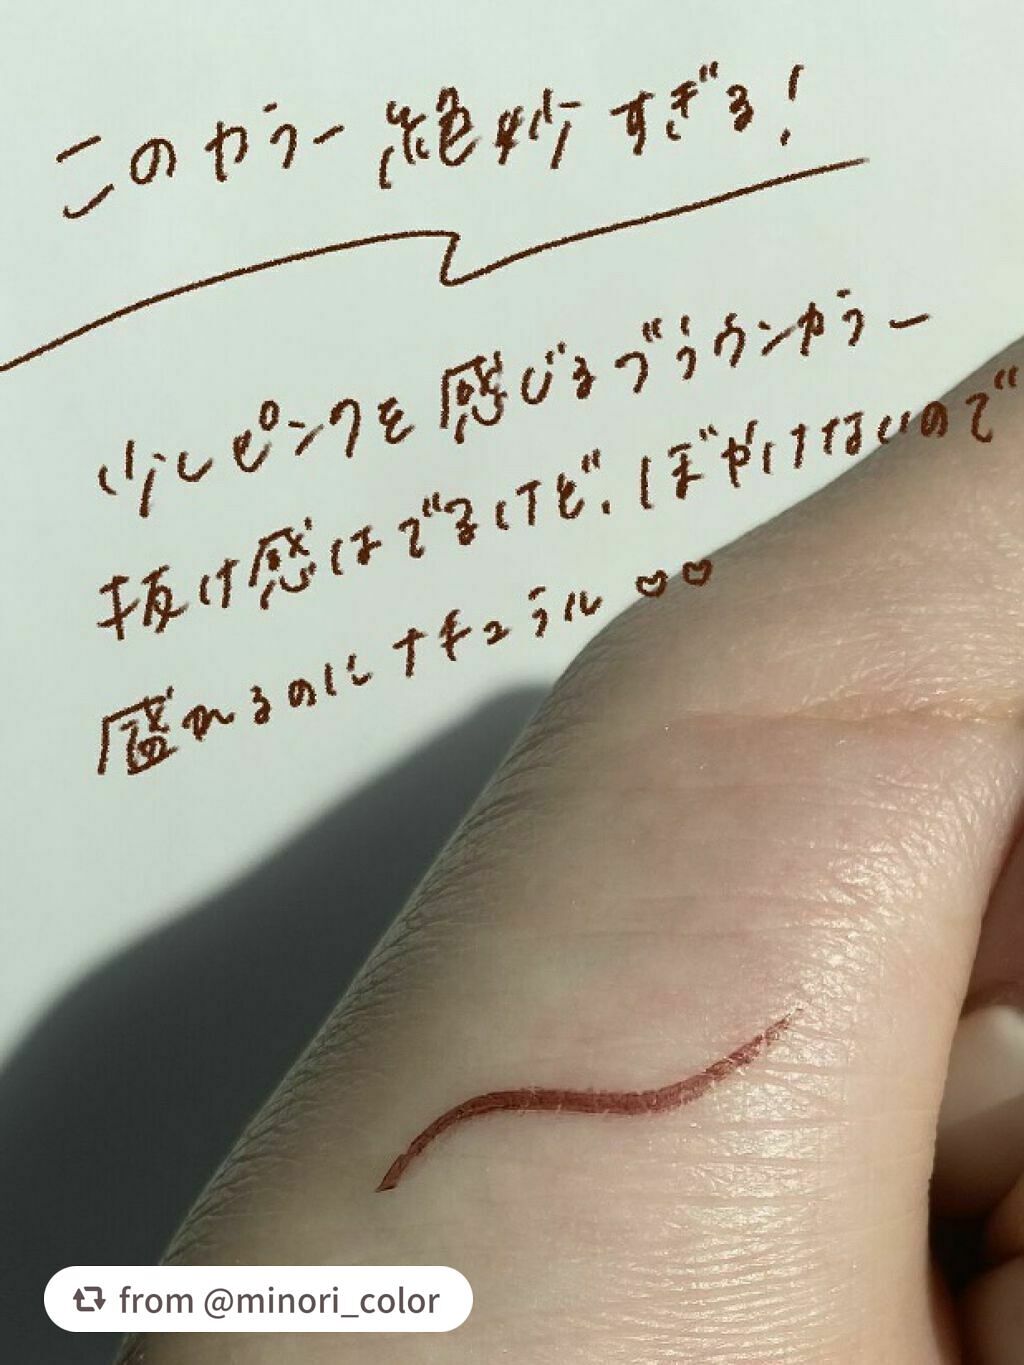 このカラー絶妙すぎる!
少しピンクを感じるブラウンカラー
抜け感はでるけど、ぼやけないので
盛れるのにナチュラル♡♡
from @minori_color